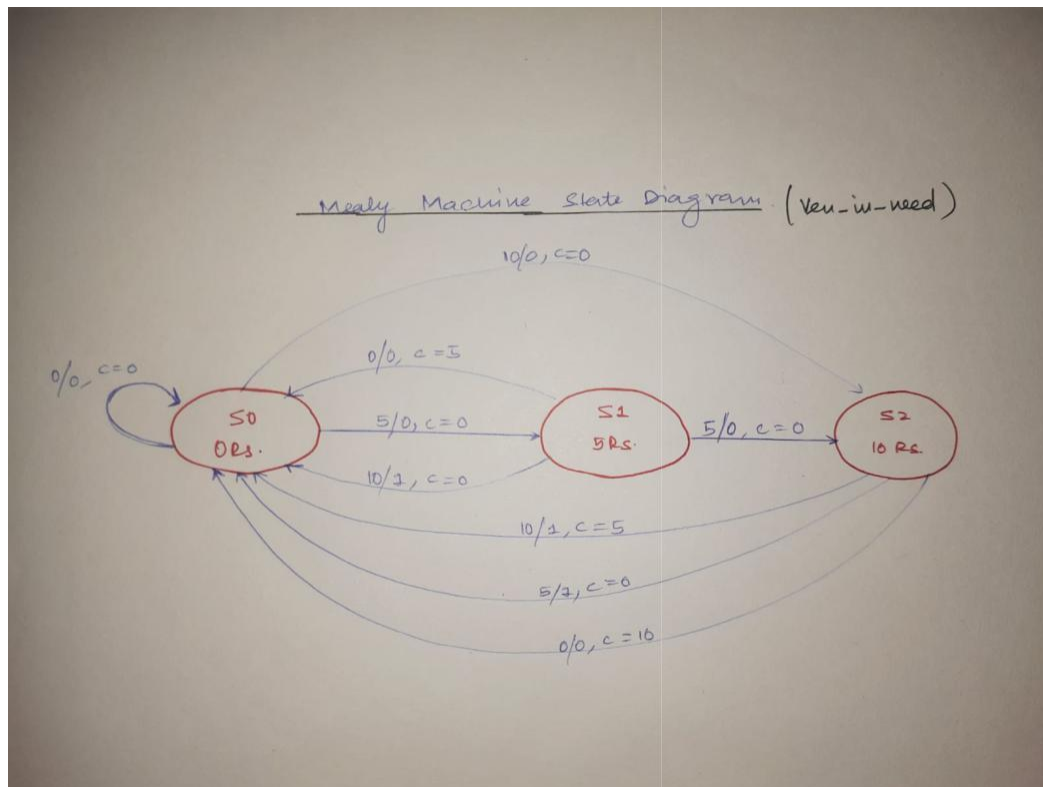 Mealy Machine State Diagram. (Ven-in-need)
10/0, c=0
0/0, c=0
0/0, c=5
S0
0Rs.
5/0, c=0
S1
5Rs.
5/0, c=0
S2
10 Rs.
10/1, c=0
10/1, c=5
5/1, c=0
0/0, c=10